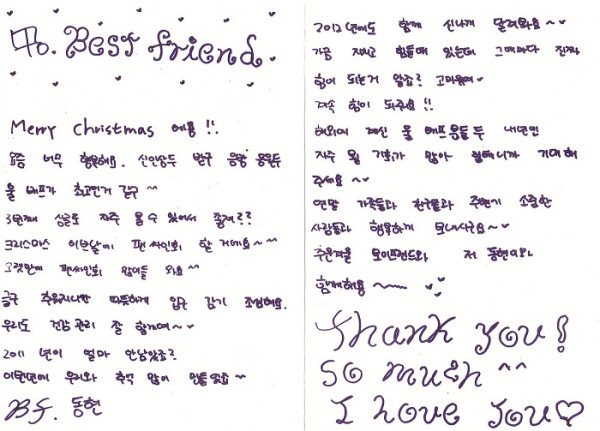 To. Best friend.
Merry Christmas 에용 !!
요즘 너무 행복해요. 신인상두 받구 음방 응원두
울 베프가 최고인거 같구 ^^
3번째 싱글도 자주 볼 수 있어서 좋죠??
크리스마스 이브날에 팬싸인회 할 거예요~^^
그랫만에 팬싸인회 많이들 와요^^
글구 추워지니깐 따뜻하게 입구 감기 조심해요.
우리도 건강관리 잘 할게여~♥
2011년이 얼마 안남았죠?
이번년에 우리와 추억 많이 만들었죠^^
B.f. 동현
2012년에도 함께 신나게 달려봐요~♥
가끔 지치고 힘들때 있는데 그때마다 진짜
힘이 되는거 알죠? 고마워여♥
계속 힘이 되주세요!!
해외에 계신 울 베프분들두 내년엔
자주 뵐 기회가 많아 질테니까 기대해
주세요~♥
연말 가족들과 친구들과 주변에 소중한
사람들과 행복하게 보내시구요~♥
추운겨울 보이프렌드와 저 동현이와
함께해용~♥
Thank you!
So much ^^
I love you♡